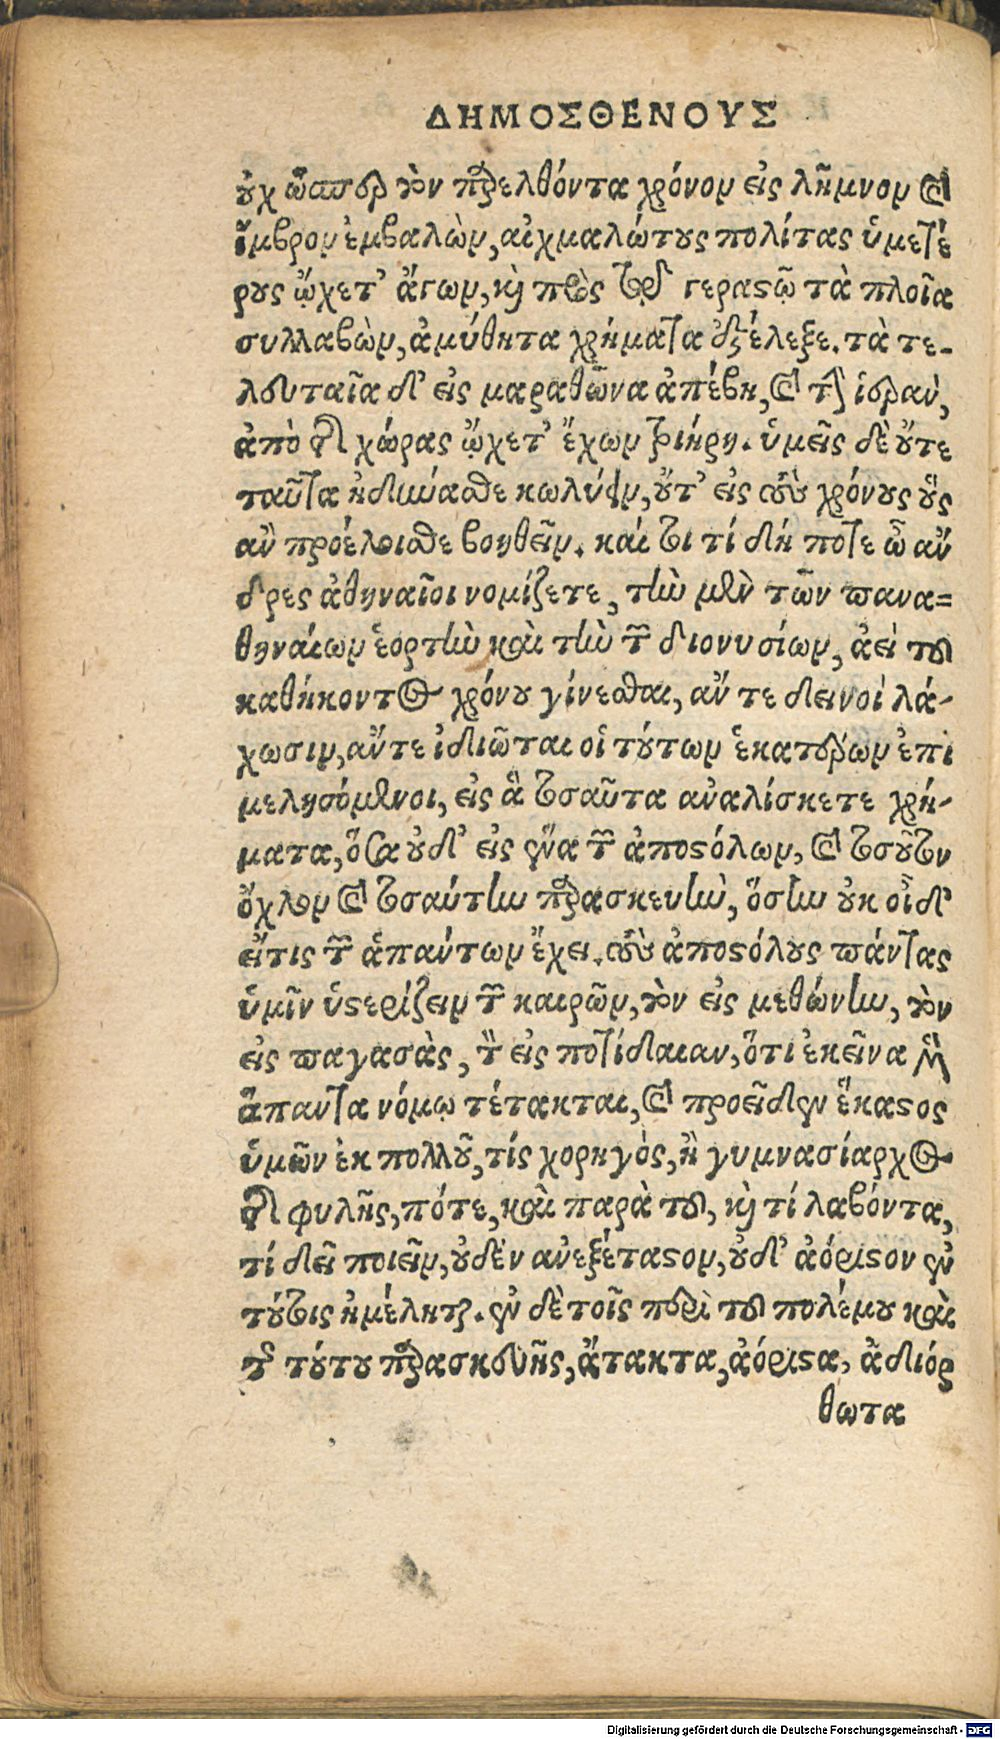 ΔΗΜΟΣΘΕΝΟΥΣ
οὐχ ὥσπερ τὸν παρελθόντα χρόνον εἰς λῆμνον καὶ
ἴμβρον ἐμβαλὼν, αἰχμαλώτους πολίτας ὑμετέ
ρους ᾤχετ' ἄγων, καὶ πρὸς τῷ γεραιστῷ τὰ πλοῖα
συλλαβὼν, ἀμύθητα χρήματα ἐξέλεξε. τὰ τε-
λευταῖα δ' εἰς μαραθῶνα ἀπέβη, καὶ τὴν ἱερὰν,
ἀπὸ τῆς χώρας ᾤχετ' ἔχων τριήρη. ὑμεῖς δὲ οὔτε
ταῦτα ἠδύνασθε κωλύειν, οὔτ' εἰς τοὺς χρόνους οὓς
ἂν προέλοισθε βοηθεῖν. καί τοι τί δή ποτε ὦ ἄν
δρες ἀθηναῖοι νομίζετε, τὴν μὲν τῶν πανα=
θηναίων ἑορτὴν καὶ τὴν τῶν διονυσίων, ἀεὶ τοῦ
καθήκοντος χρόνου γίνεσθαι, ἄν τε δεινοὶ λά-
χωσιν, ἄν τε ἰδιῶται οἱ τούτων ἑκατέρων ἐπι
μελησόμενοι, εἰς ἃ τοσαῦτα ἀναλίσκετε χρή-
ματα, ὅσα οὐδ' εἰς ἕνα τῶν ἀποστόλων, καὶ τοσοῦτον
ὄχλον καὶ τοσαύτην παρασκευὴν, ὅσην οὐκ οἶδ'
εἴ τις τῶν ἁπάντων ἔχει. τοὺς ἀποστόλους πάντας
ὑμῖν ὑστερίζειν τῶν καιρῶν, τὸν εἰς μεθώνην, τὸν
εἰς παγασὰς, τὸν εἰς ποτίδαιαν, ὅτι ἐκεῖνα μὲν
ἅπαντα νόμῳ τέτακται, καὶ προεῖδεν ἕκαστος
ὑμῶν ἐκ πολλοῦ, τίς χορηγὸς, ἢ γυμνασίαρχος
τῆς φυλῆς, πότε, καὶ παρὰ τοῦ, καὶ τί λαβόντα,
τί δεῖ ποιεῖν, οὐδὲν ἀνεξέταστον, οὐδ' ἀόριστον ἐν
τούτοις ἠμέληται. ἐν δὲ τοῖς περὶ τοῦ πολέμου καὶ
τῆς τούτου παρασκευῆς, ἄτακτα, ἀόριστα, ἀδιόρ
θωτα
Digitalisierung gefördert durch die Deutsche Forschungsgemeinschaft - DFG